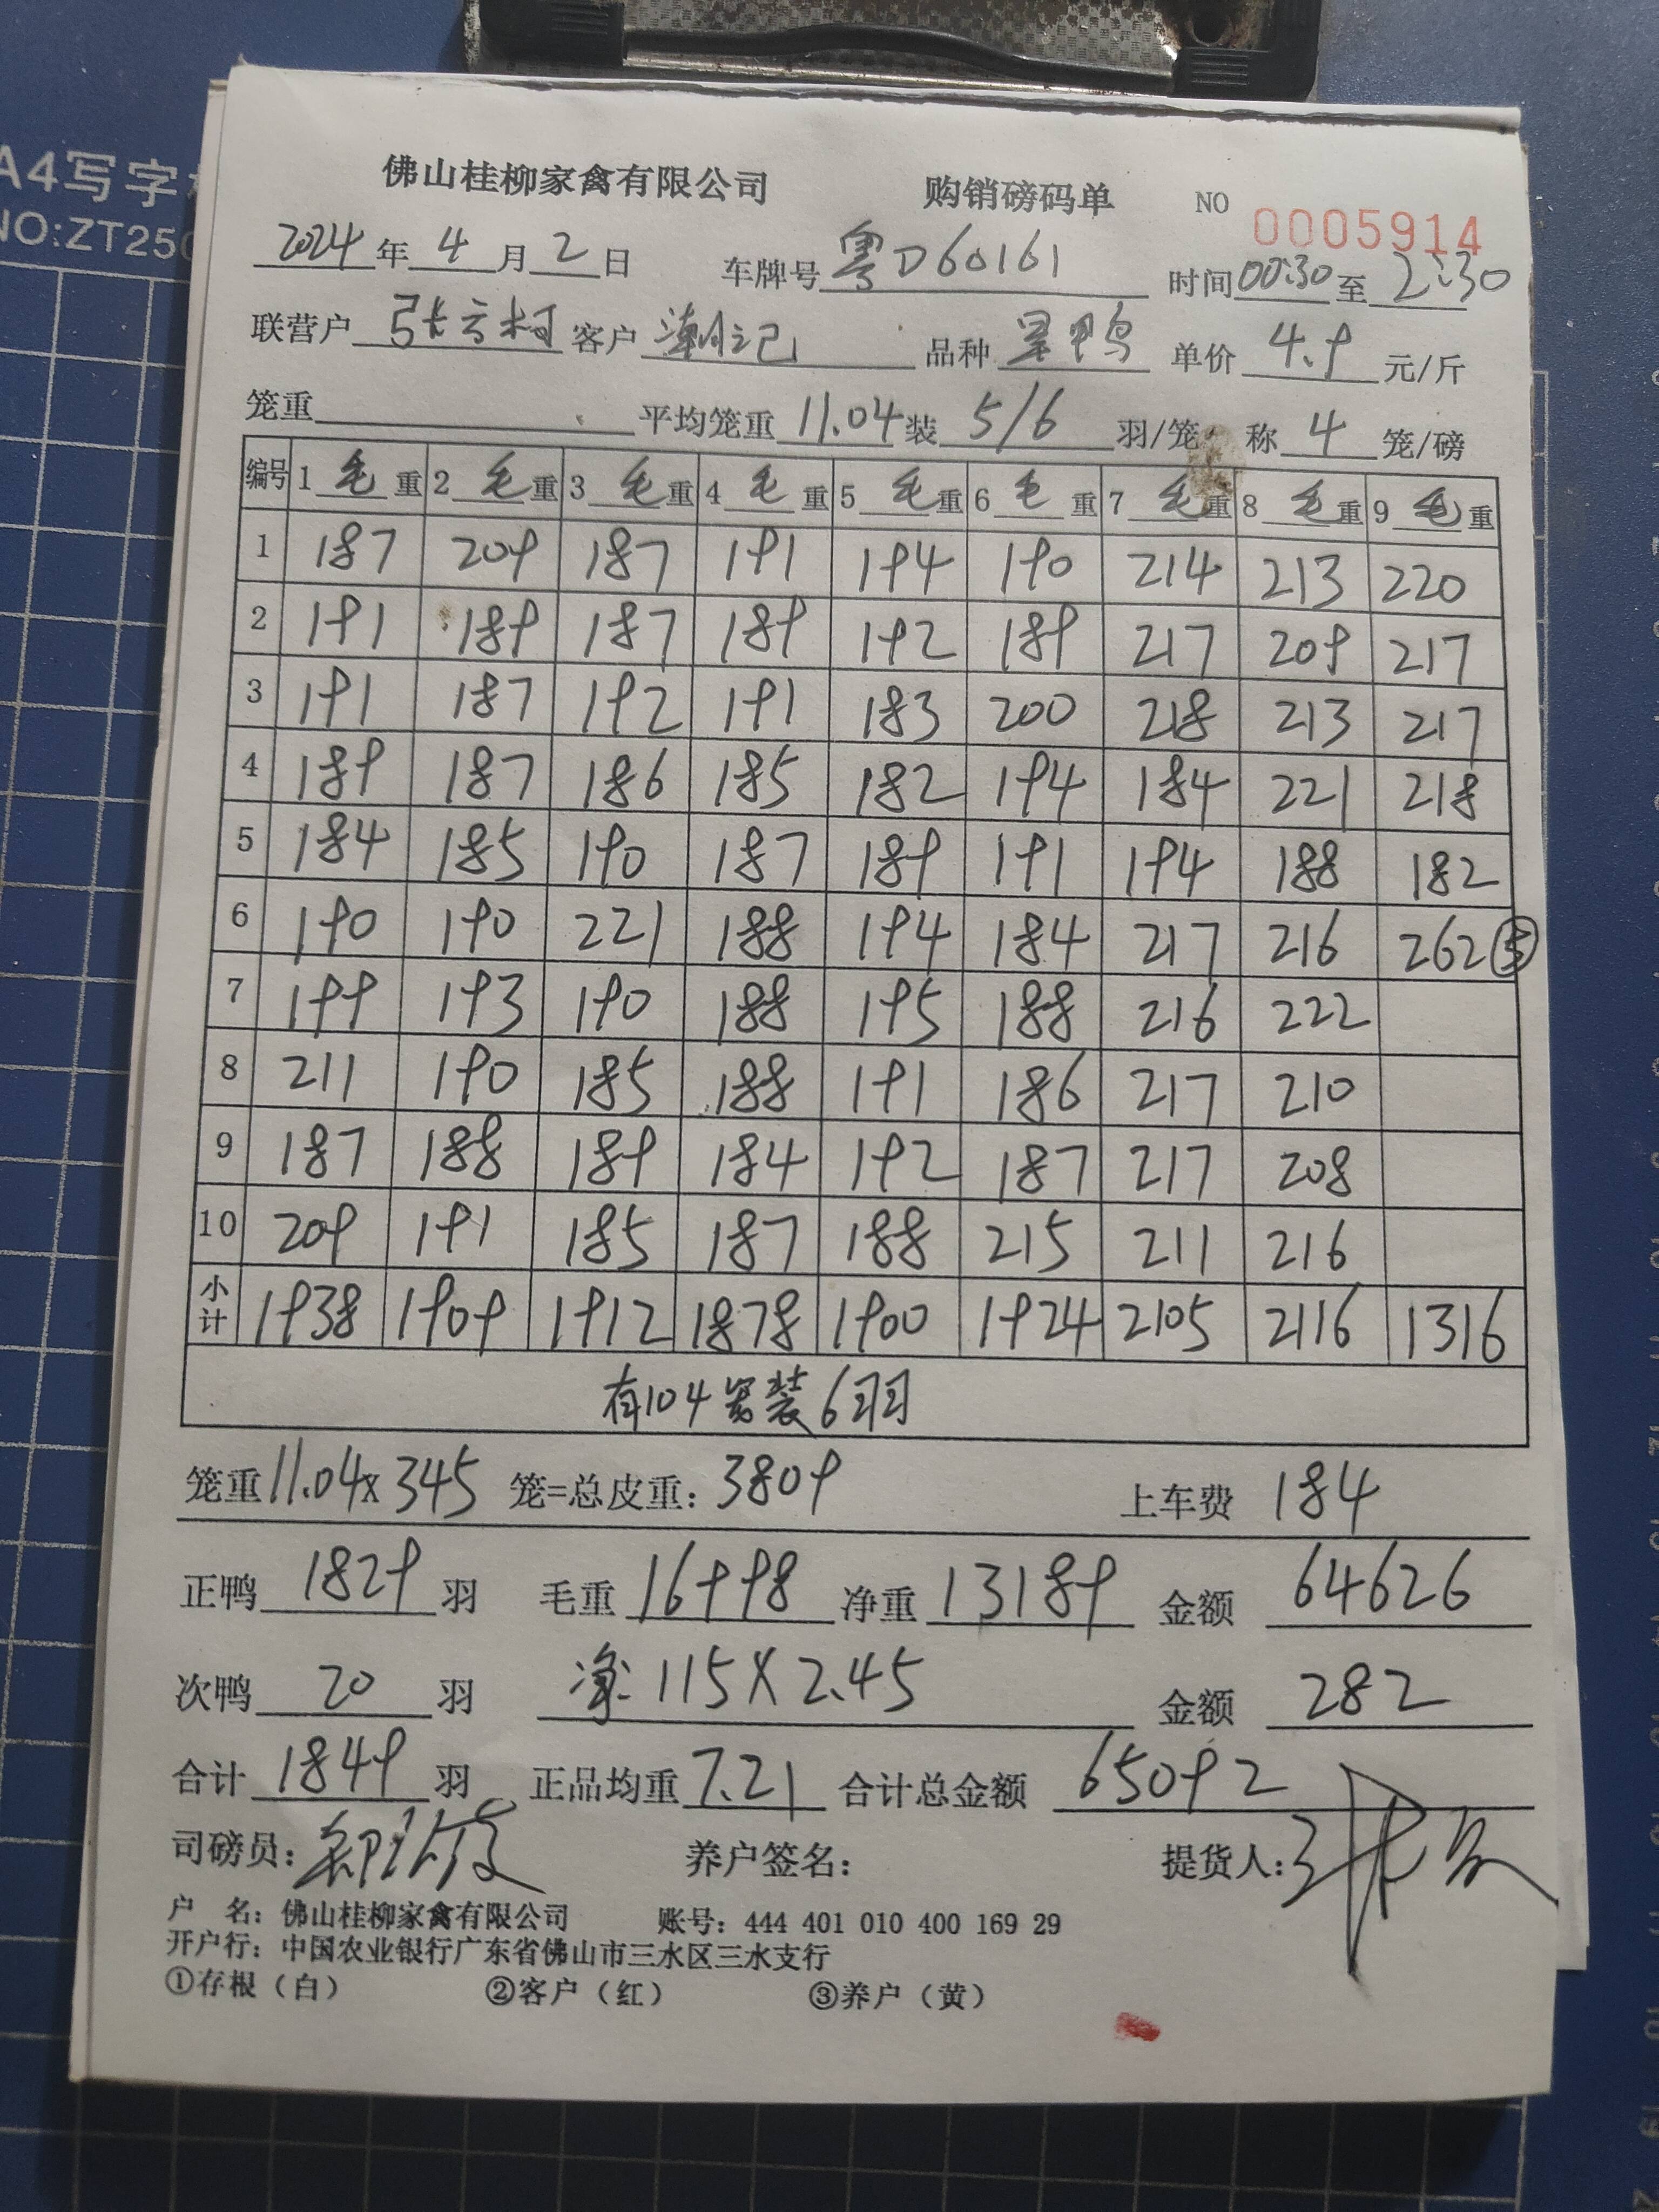 A4写字
NO:ZT250
佛山桂柳家禽有限公司 购销磅码单 NO 0005914
2024年4月2日 车牌号粤D60161 时间00:30至2:30
联营户 客户潮记 品种 单价4.9元/斤
笼重 平均笼重11.04装5/6羽/笼 称4笼/磅
编号 1毛重 2毛重 3毛重 4毛重 5毛重 6毛重 7毛重 8毛重 9毛重
1 187 209 187 191 194 190 214 213 220
2 191 189 187 189 192 189 217 209 217
3 191 187 192 191 183 200 218 213 217
4 189 187 186 185 182 194 184 221 218
5 184 185 190 187 189 191 194 188 182
6 190 190 221 188 194 184 217 216 262⑤
7 199 193 190 188 195 188 216 222
8 211 190 185 188 191 186 217 210
9 187 188 189 184 192 187 217 208
10 209 191 185 187 188 215 211 216
小计 1938 1909 1912 1878 1900 1924 2105 2116 1316
有104 装6羽
笼重11.04x345 笼=总皮重:3809 上车费 184
正鸭1829羽 毛重16998 净重13189 金额64626
次鸭20羽 净:115X2.45 金额282
合计1849羽 正品均重7.21 合计总金额65092
司磅员: 养户签名: 提货人:
户 名:佛山桂柳家禽有限公司 账号:444 401 010 400 169 29
开户行:中国农业银行广东省佛山市三水区三水支行
①存根(白) ②客户(红) ③养户(黄)